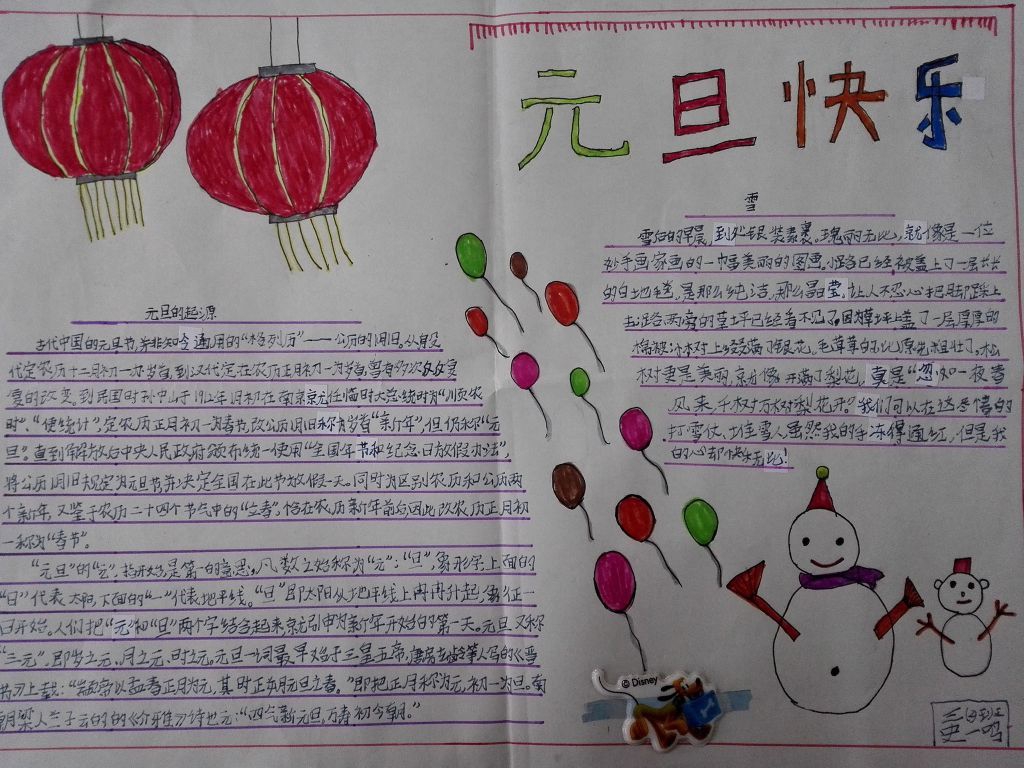 元旦快乐
元旦的起源
古代中国的元旦节,并非如今通用的“格列历”——公历的1月1日,从殷
代定农历十二月初一为岁首,到汉代定在农历正月初一为岁首,
变的改变。到民国时孙中山于1912年1月初在南京就任临时大总统时为“顺农
时”、“便统计”,定农历正月初一为春节,改公历1月1日称为岁首“新年”,但仍称“元
旦”。直到解放后中央人民政府颁布统一使用“全国年节和纪念日放假办法”,
将公历1月1日规定为元旦节,并决定全国在此节放假一天。同时为区别农历和公历两
个新年,又鉴于农历二十四个节气中的“立春”,恰在农历新年前后因此改农历正月初
一称为“春节”。
“元旦”的“元”,指开始,是第一的意思,凡数之始称为“元”;“旦”,象形字上面的
“日”代表太阳,下面的“一”代表地平线。“旦”即太阳从地平线上冉冉升起,象征一
日开始。人们把“元”和“旦”两个字结合起来就引申为新年开始的第一天。元旦又称
“三元”,即岁之元、月之元、时之元。元旦一词最早始于三皇五帝,唐房玄龄等人写的《晋
书》上载:“颛帝以孟春正月为元,其时正朔元旦立春。”即把正月称为元,初一为旦。南
朝梁人兰子云的的《介雅》诗也元:“四气新元旦,万寿初今朝。”
雪
雪后的早晨,到处银装素裹,瑰丽无比,就像是一位
妙手画家画的一幅美丽的图画。小路已经被盖上了一层长长
的白地毯,是那么纯洁,那么晶莹,让人不忍心把脚踩上
去。路两旁的草坪已经看不见了,因为草坪上盖了一层厚厚的
棉被。树上缀满了银花,毛茸茸的,比原先粗壮了。松
树更是美丽,就像开满了梨花,真是“忽如一夜春
风来,千树万树梨花开”。我们可以在这尽情的
打雪仗、堆雪人,虽然我的手冻得通红,但是我
的心却快乐无比!
© Disney
三(4)班
史一鸣